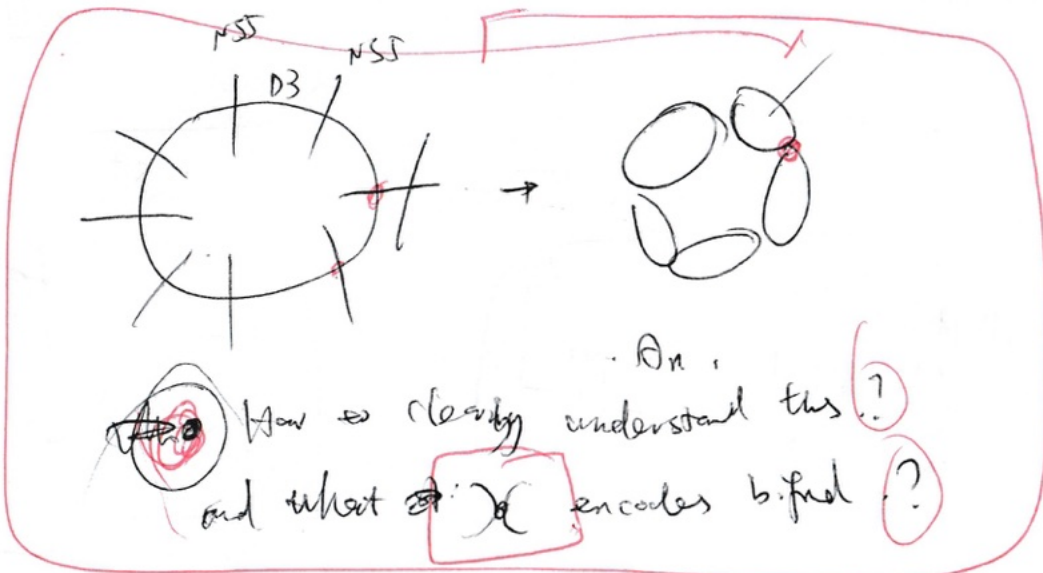 NS5
NS5
D3
An.
How to clearly understand this ?
and what encodes bifud ?